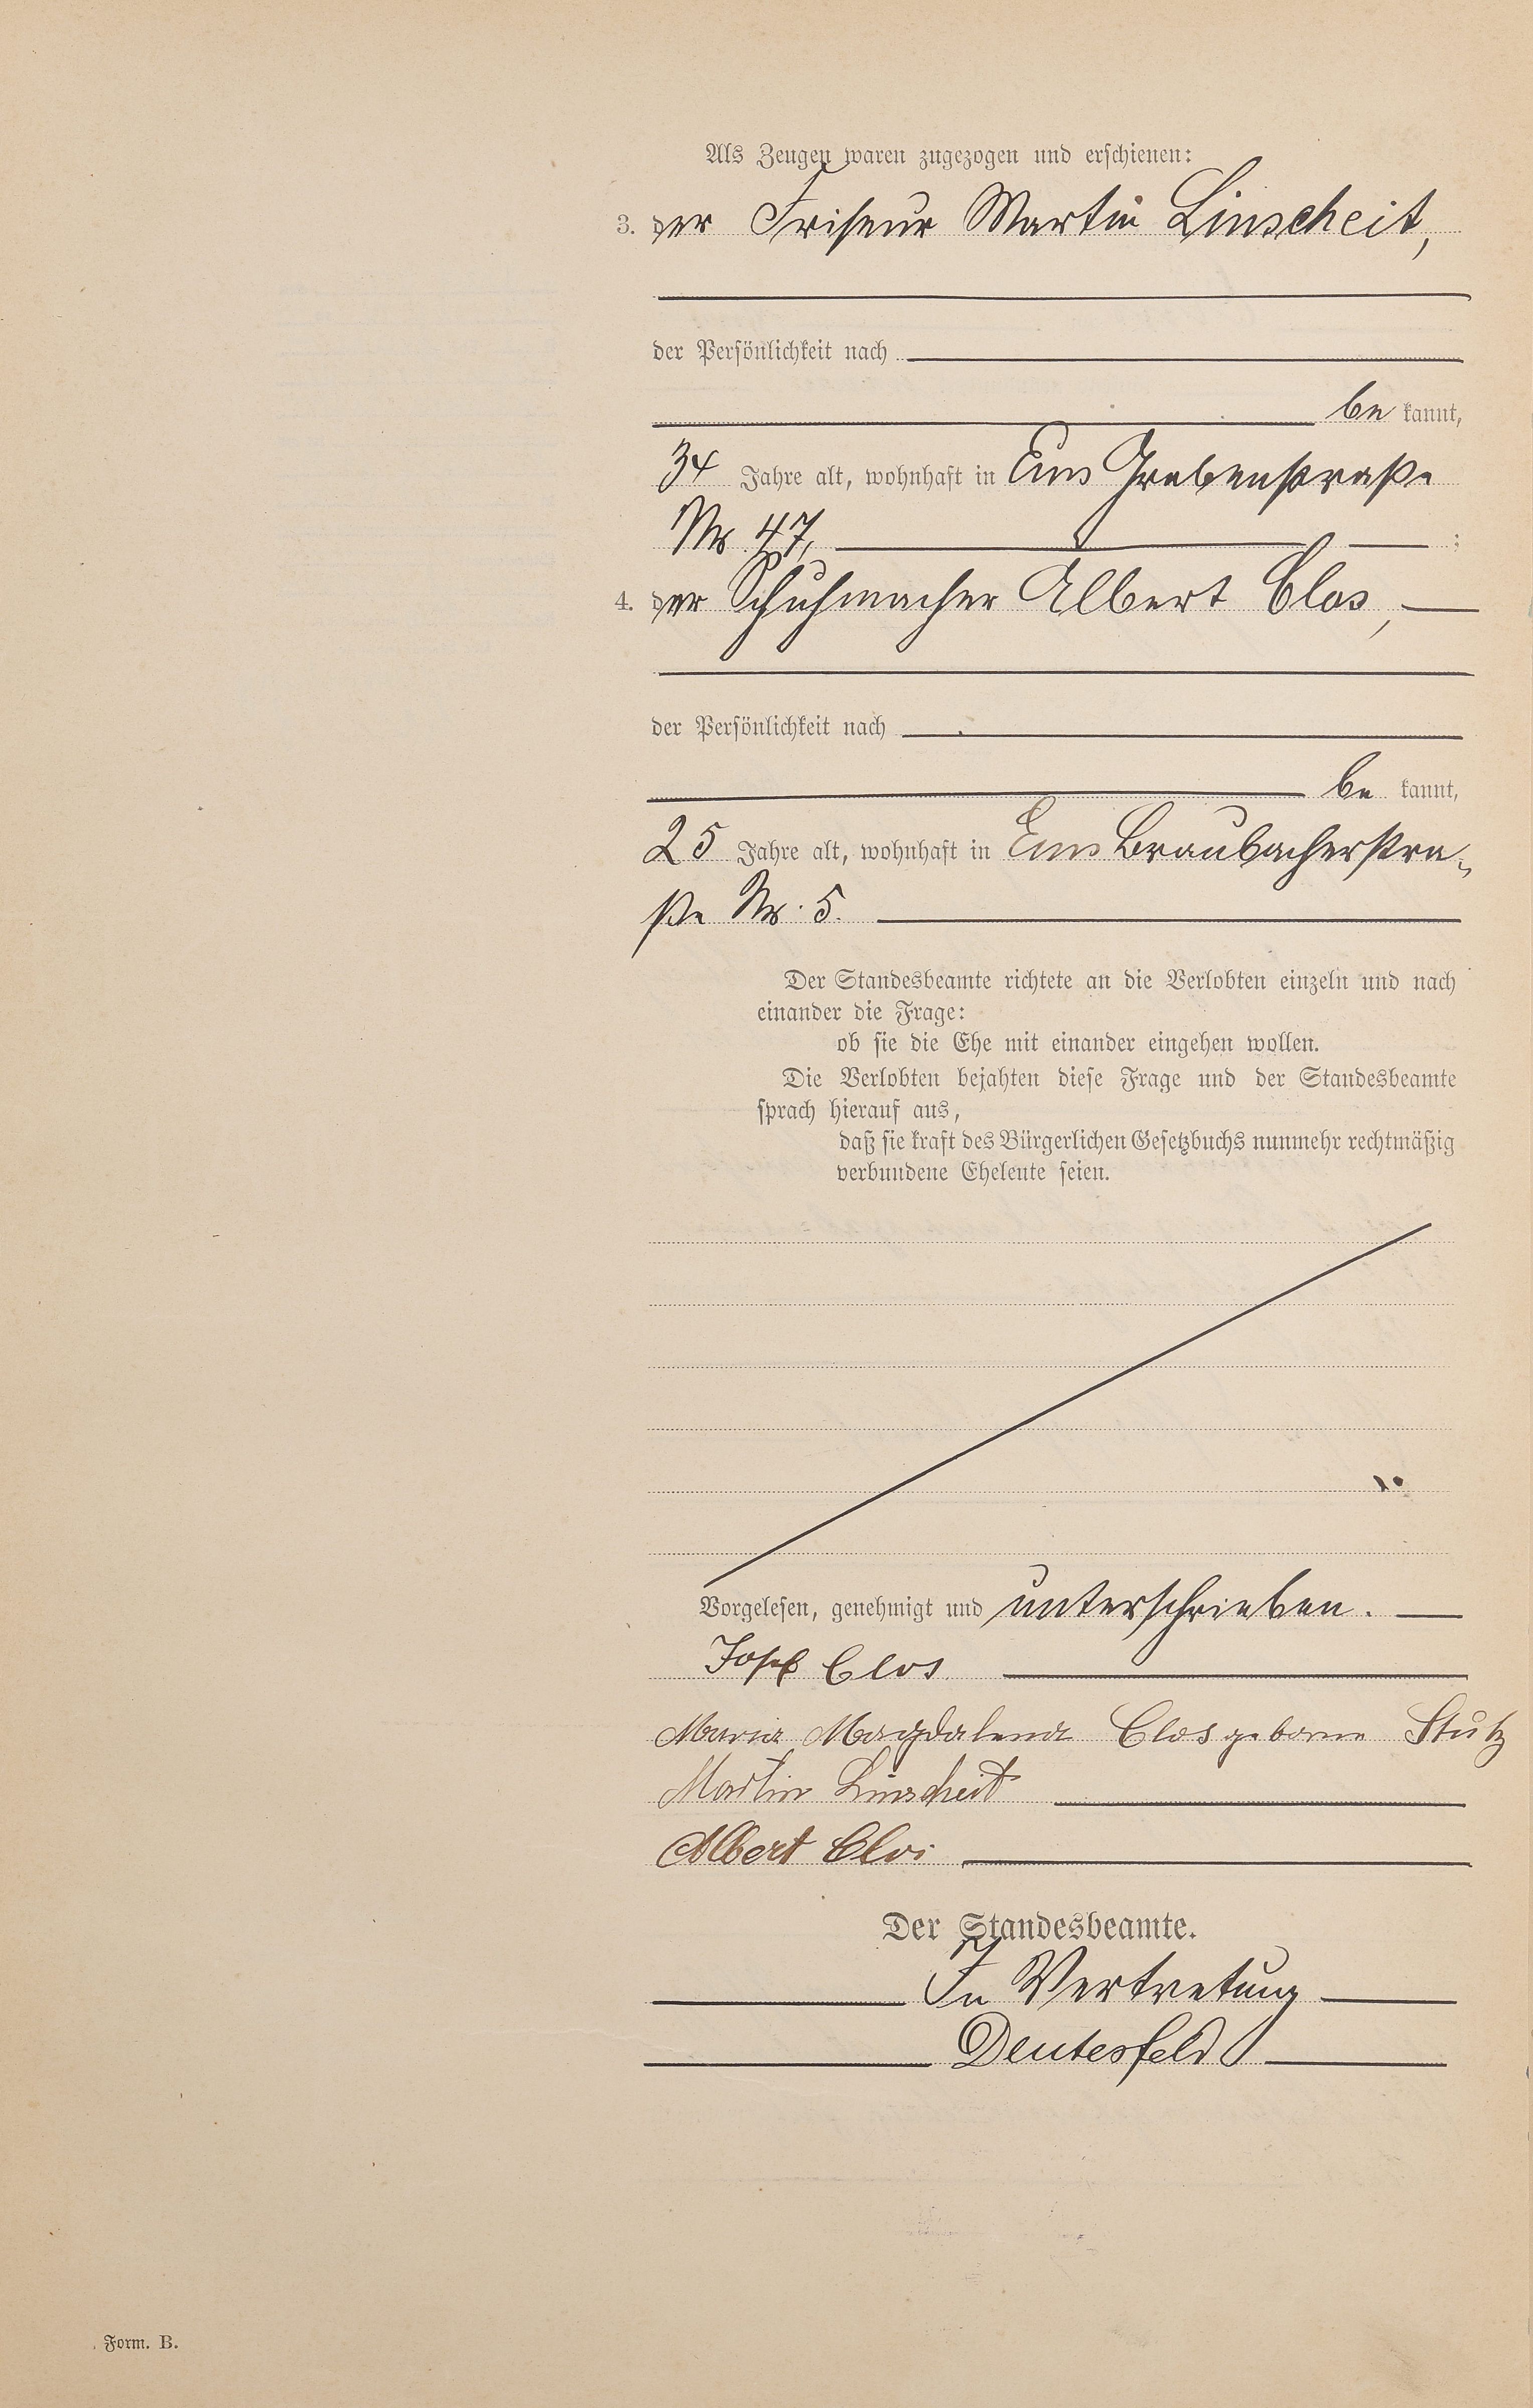 Als Zeugen waren zugezogen und erschienen:
3. der Friseur Martin Linscheit,
der Persönlichkeit nach
be kannt,
34 Jahre alt, wohnhaft in Ems Grabenstraße
Nr. 47, ;
4. der Schuhmacher Albert Clos,
der Persönlichkeit nach
be kannt,
25 Jahre alt, wohnhaft in Ems Braubacherstra-
ße Nr. 5.
Der Standesbeamte richtete an die Verlobten einzeln und nach
einander die Frage:
ob sie die Ehe mit einander eingehen wollen.
Die Verlobten bejahten diese Frage und der Standesbeamte
sprach hierauf aus,
daß sie kraft des Bürgerlichen Gesetzbuchs nunmehr rechtmäßig
verbundene Eheleute seien.
Vorgelesen, genehmigt und unterschrieben.
Josef Clos
Maria Magdalena Clos geborne Stütz
Martin Linscheit
Albert Clos
Der Standesbeamte.
In Vertretung
Deutesfeld
Form. B.